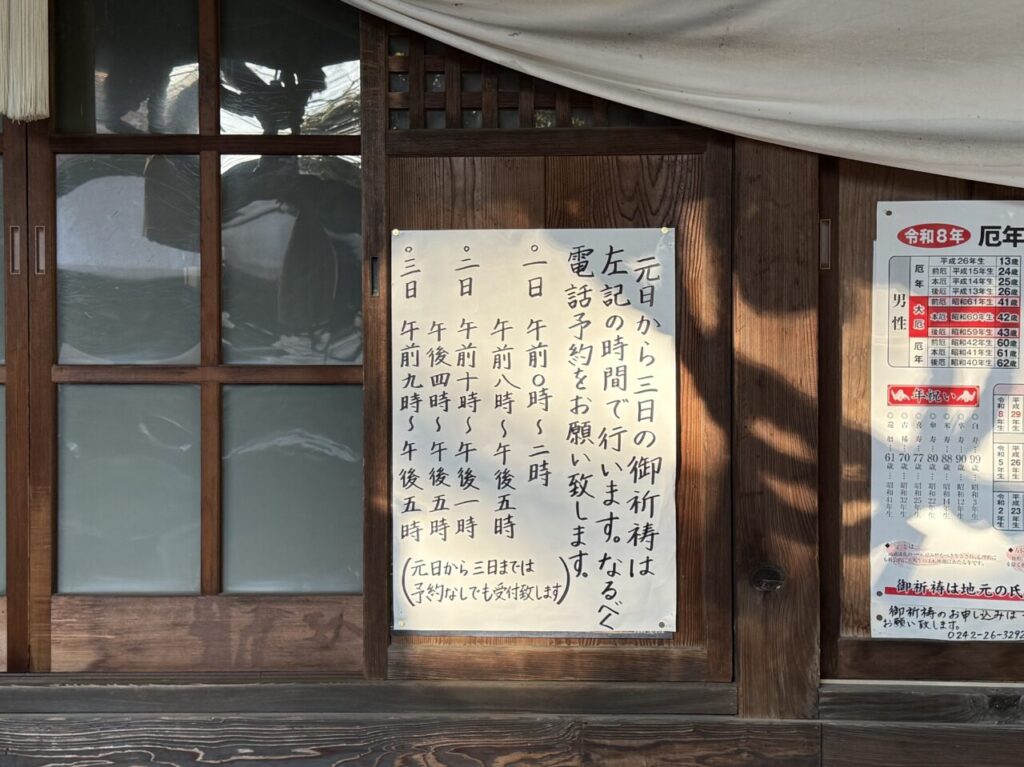 元日から三日の御祈祷は
左記の時間で行います。なるべく
電話予約をお願い致します。
○一日 午前0時〜二時
午前八時〜午後五時
○二日 午前十時〜午後一時
午後四時〜午後五時
○三日 午前九時〜午後五時
(元日から三日までは
予約なしでも受付致します)
令和8年 厄年
男性
厄年
大厄
厄年
平成26年生 13歳
前厄 平成15年生 24歳
本厄 平成14年生 25歳
後厄 平成13年生 26歳
前厄 昭和61年生 41歳
本厄 昭和60年生 42歳
後厄 昭和59年生 43歳
前厄 昭和42年生 60歳
本厄 昭和41年生 61歳
後厄 昭和40年生 62歳
年祝い
白寿 99歳…昭和3年生
卒寿 90歳…昭和12年生
米寿 88歳…昭和14年生
傘寿 80歳…昭和22年生
喜寿 77歳…昭和25年生
古稀 70歳…昭和32年生
還暦 61歳…昭和41年生
平成29年
令和8年生
平成26年
令和5年生
平成23年
令和2年生
御祈祷は地元の氏
御祈祷のお申し込みは
お願い致します。
0242-26-3292